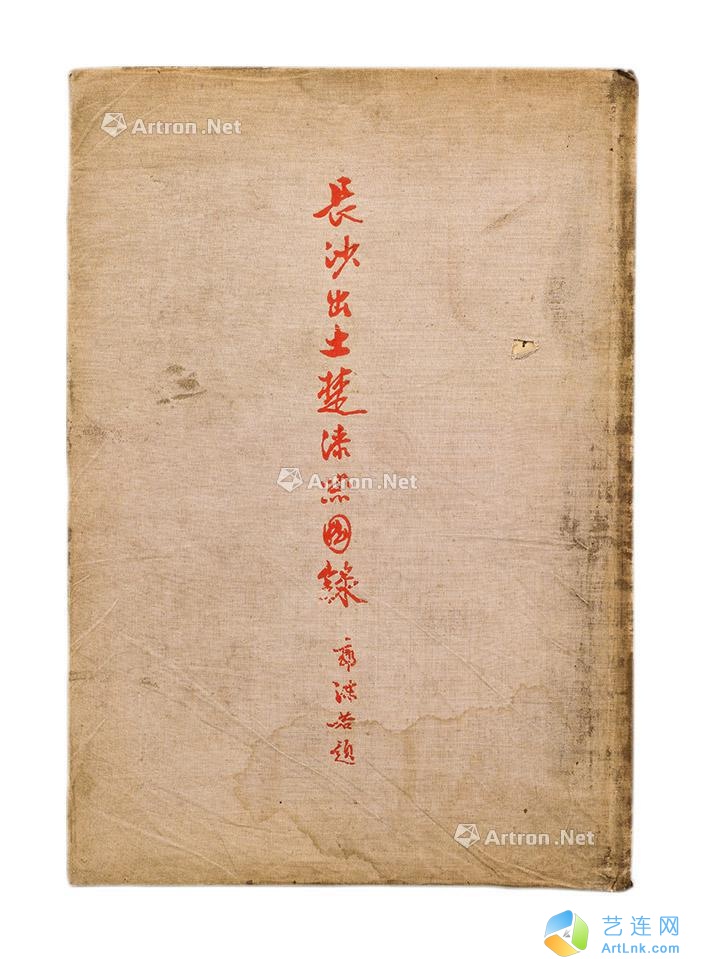 Artron.Net
長沙出土楚漆器图錄
郭沫若題
Artron.Net
Artron.Net
艺连网
ArtLnk.com